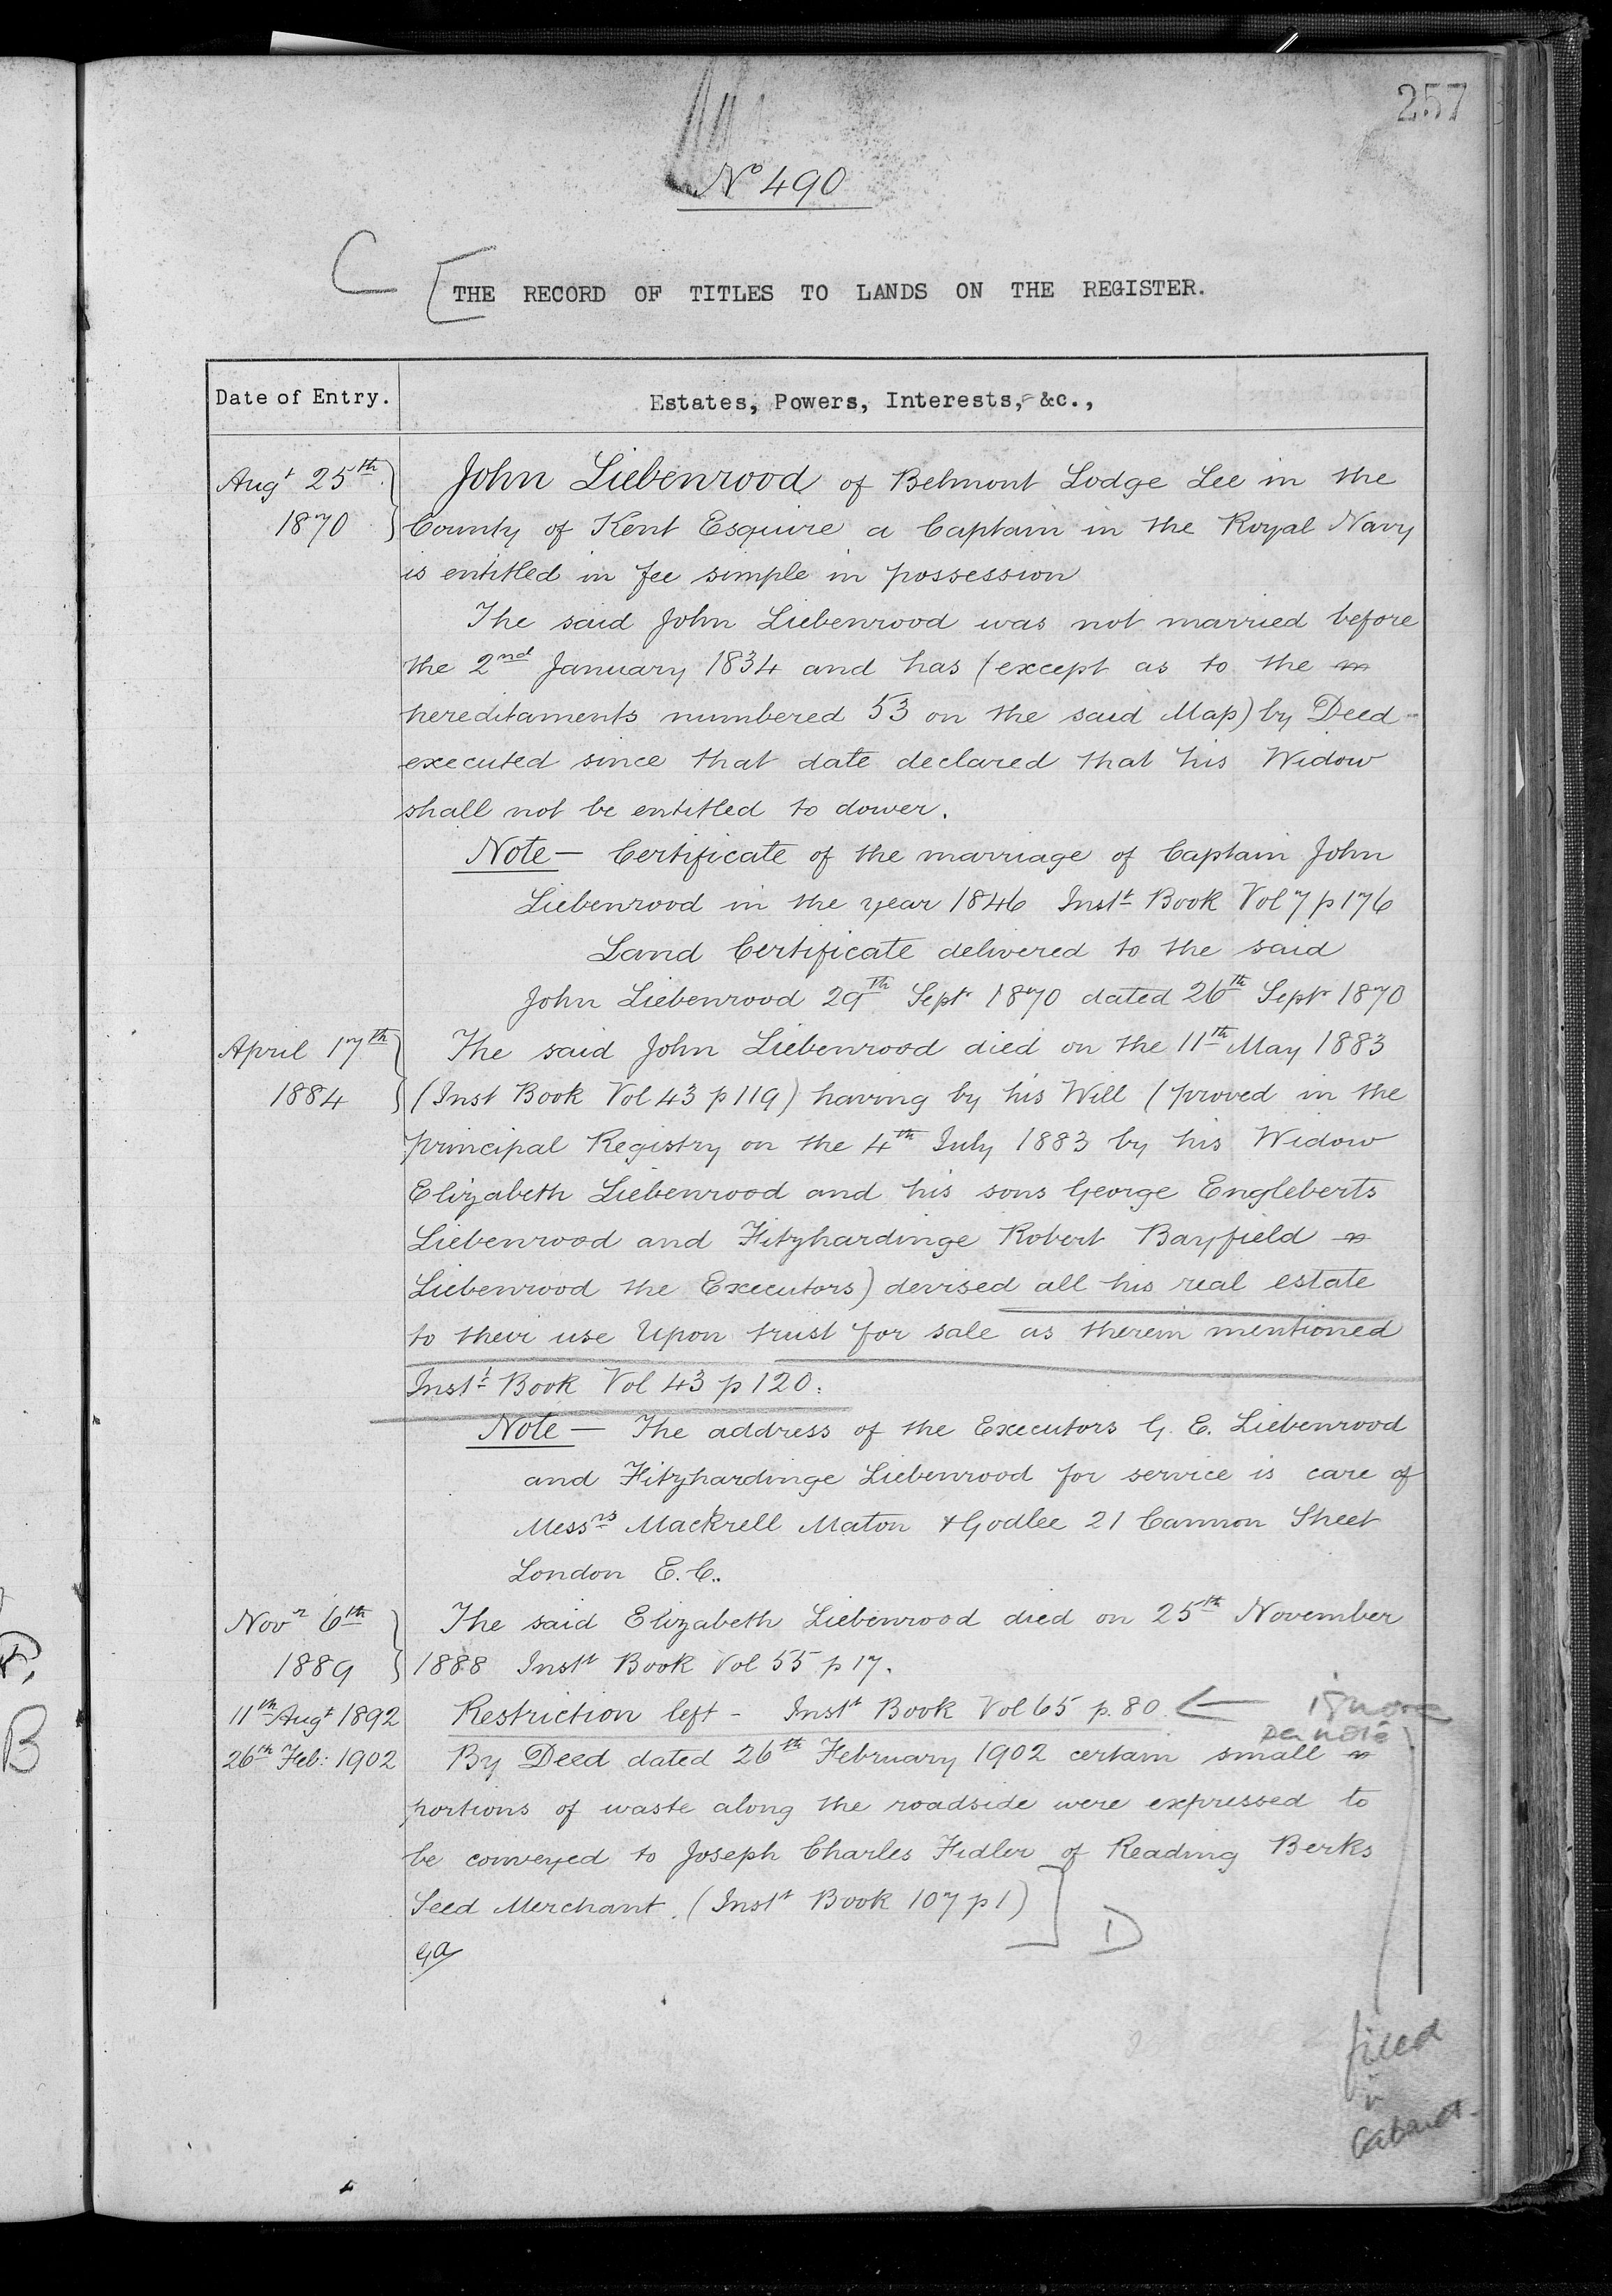 257
No 490
C
THE RECORD OF TITLES TO LANDS ON THE REGISTER.
Date of Entry.
Estates, Powers, Interests, &c.,
Augt 25th
1870
John Liebenrood of Belmont Lodge Lee in the
County of Kent Esquire a Captain in the Royal Navy
is entitled in fee simple in possession
The said John Liebenrood was not married before
the 2nd January 1834 and has (except as to the
hereditaments numbered 53 on the said Map) by Deed
executed since that date declared that his Widow
shall not be entitled to dower.
Note - Certificate of the marriage of Captain John
Liebenrood in the year 1846 Instt Book Vol 7 p 176
Land Certificate delivered to the said
John Liebenrood 29th Sept 1870 dated 26th Sept 1870
April 17th
1884
The said John Liebenrood died on the 11th May 1883
(Inst Book Vol 43 p 119) having by his Will (proved in the
principal Registry on the 4th July 1883 by his Widow
Elizabeth Liebenrood and his sons George Engleberts
Liebenrood and Fitzhardinge Robert Bayfield
Liebenrood the Executors) devised all his real estate
to their use Upon trust for sale as therein mentioned
Instt Book Vol 43 p 120.
Note - The address of the Executors G. E. Liebenrood
and Fitzhardinge Liebenrood for service is care of
Messrs Mackrell Maton & Godlee 21 Cannon Street
London E.C.
Novr 6th
1889
The said Elizabeth Liebenrood died on 25th November
1888 Instt Book Vol 55 p 17.
11th Augt 1892
Restriction left - Instt Book Vol 65 p. 80. ← ignore
note
26th Feb: 1902
By Deed dated 26th February 1902 certain small
portions of waste along the roadside were expressed to
be conveyed to Joseph Charles Fidler of Reading Berks
Seed Merchant. (Instt Book 107 p 1)
D
filed
in
Cabinet.
B